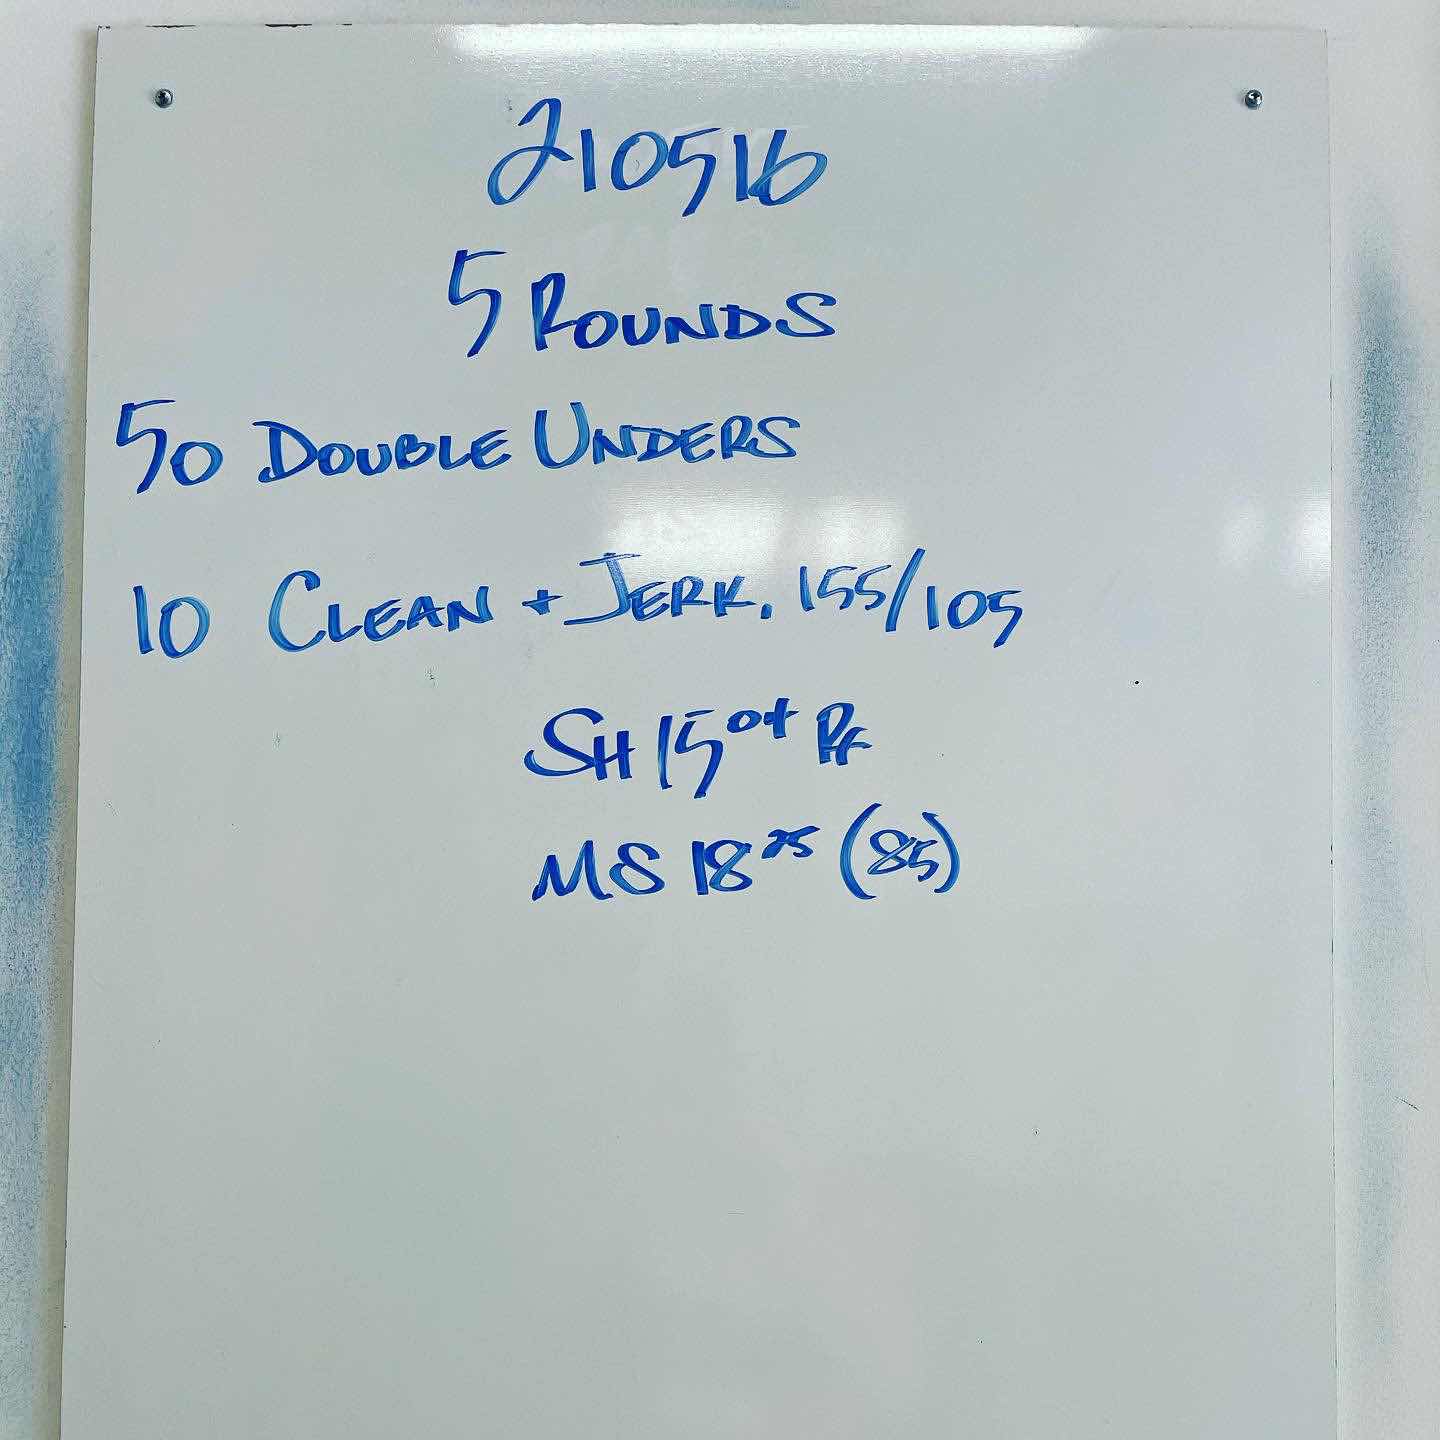 210516
5 ROUNDS
50 DOUBLE UNDERS
10 CLEAN + JERK. 155/105
SH 15 04
MS 18 25 (85)